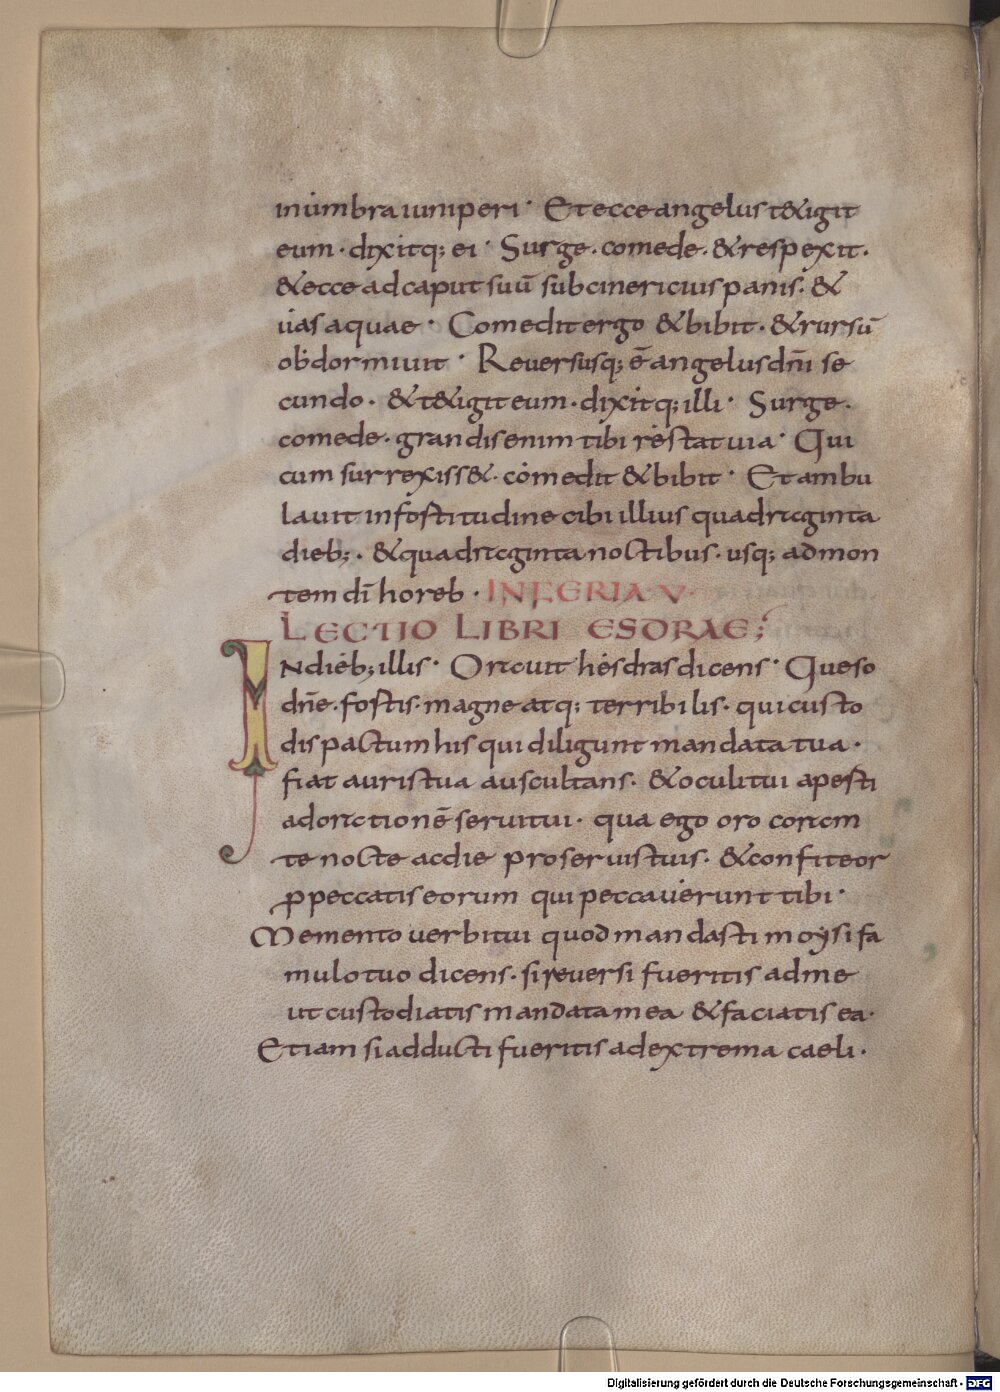 in umbra iuniperi · Et ecce angelus t&igit
eum · dixitq; ei · Surge · comede · & respexit ·
& ecce ad caput suū subcinericius panis · &
uas aquae · Comedit ergo & bibit · & rursū
obdormiuit · Reuersusq; ē angelus dn̄i se
cundo · & t&igit eum · dixitq; illi · Surge ·
comede · grandis enim tibi restat uia · Qui
cum surrexiss& · comedit & bibit · Et ambu
lauit in fortitudine cibi illius quadraginta
dieb; · & quadraginta noctibus · usq; ad mon
tem dī horeb · IN FERIA V ·
LECTIO LIBRI ESDRAE;
IN dieb; illis · Orauit hesdras dicens · Queso
dn̄e · fortis · magne atq; terribilis · qui custo
dis pactum his qui diligunt mandata tua ·
fiat auris tua auscultans · & oculi tui aperti
ad orationē serui tui · qua ego oro coram
te nocte ac die pro seruis tuis · & confiteor
ꝓ peccatis eorum qui peccauerunt tibi ·
Memento uerbi tui quod mandasti moysi fa
mulo tuo dicens · si reuersi fueritis ad me
ut custodiatis mandata mea & faciatis ea ·
Etiam si adducti fueritis ad extrema caeli ·
Digitalisierung gefördert durch die Deutsche Forschungsgemeinschaft - DFG